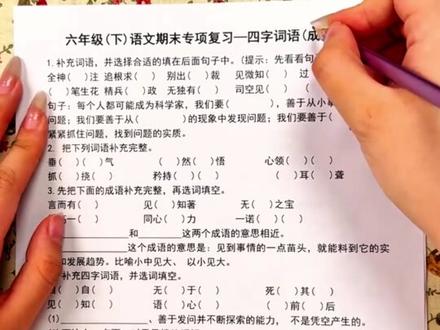 六年级(下)语文期末专项复习—四字词语(成
1.补充词语，并选择合适的填在后面句子中。(提示：先看看句
全神( )注 追根求( ) 别出( )裁 见微知( ) 过
( )笔生花 精兵( )政 无独有( ) 司空见( )
句子：每个人都可能成为科学家，我们要( )，善于从小事
问题；我们要善于从( )的现象中发现问题；我们要善于(
紧紧抓住问题，找到问题的实质。
2. 把下列词语补充完整。
垂( )( )气 ( )然( )悟 心领( )(
抓( )挠( ) 矜持( )( ) ( )耳( )聋
3.先把下面的成语补充完整，再选词填空。
言而有( ) 见( )知著 无( )之宝
一( ) 同心( )力 一诺( )(
和 这两个成语的意思相近。
这个成语的意思是：见到事情的一点苗头，就能料到它的实
和发展趋势。比喻小中见大、以小见大。
补充四字词语，并选词填空。
( )自( ) 无( )于( ) 死( )其(
见( )知( ) 语( )心( ) ( )前( )后
(1) ，善于发问并不断探索的能力， 不是凭空产生的。